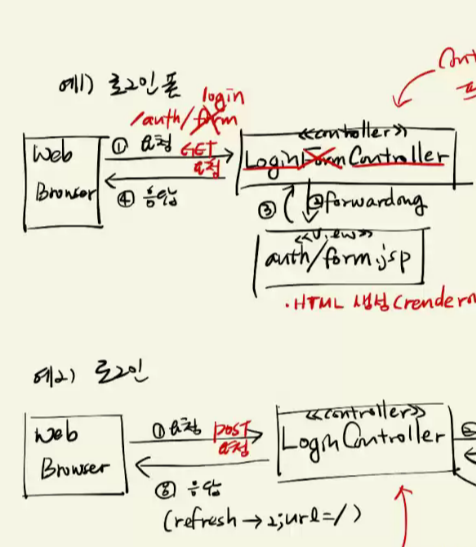 예1) 로그인 폼
login
/auth/form
Web
Browser
① 요청 GET
요청
④ 응답
<<controller>>
LoginForm Controller
③ ② forwardong
<<View>>
auth/form.jsp
·HTML 생성(render
예2) 로그인
Web
Browser
① 요청 POST
요청
⑧ 응답
(refresh → 2;url=/)
<<controller>>
LoginController